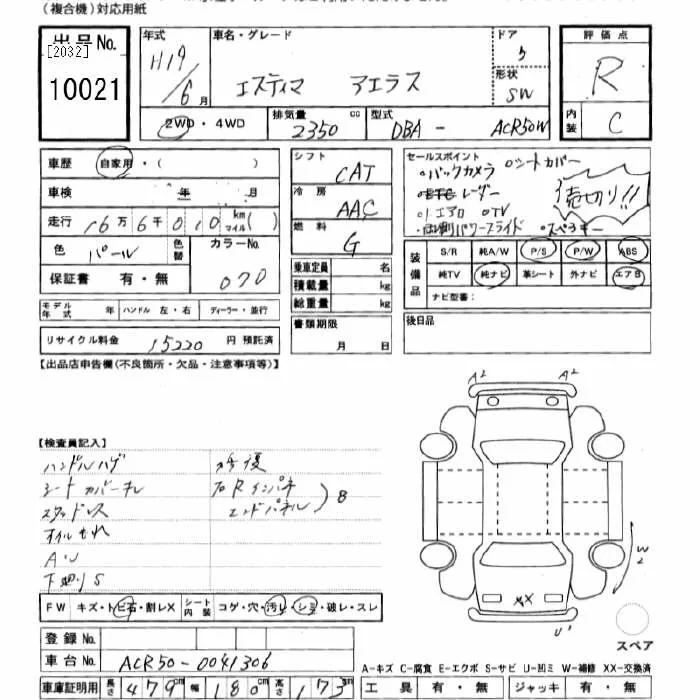 (複合機)対応用紙
出品No.
[2032]
10021
年式 H19/6月
車名・グレード エスティマ アエラス
ドア 5
形状 SW
評価点 R
内装 C
2WD・4WD
排気量 2350 cc
型式 DBA - ACR50W
車歴 自家用・( )
車検 年 月
走行 16万6千010 km マイル( )
色 パール
色替
カラーNo. 070
保証書 有・無
モデル年式 年 ハンドル 左・右 ディーラー・並行
リサイクル料金 15220 円 預託済
シフト CAT
冷房 AAC
燃料 G
乗車定員 名
積載量 kg
総重量 kg
書類期限 月 日
セールスポイント
・バックカメラ ・シートカバー
レーダー
売切り!!
エアロ ・TV
パワースライド ・スペアキー
装備品
S/R 純A/W P/S P/W ABS
純TV 純ナビ 革シート 外ナビ エアB
ナビ型番:
後日品
【出品店申告欄(不良箇所・欠品・注意事項等)】
【検査員記入】
ハンドルハゲ 修復
シートカバーキレ 右Rインパネ
スタッドレス エンドパネル ) B
オイルもれ
下廻りS
A2 A2
W2
XX
U1
スペア
FW キズ・トビ石・割レX シート内装 コゲ・穴・汚レ・シミ・破レ・スレ
登録No.
車台No. ACR50-0041306
車庫証明用 長さ 479cm 幅 180cm 高さ 173cm
A-キズ C-腐食 E-エクボ S-サビ U-凹ミ W-補修 XX-交換済
工具 有・無 ジャッキ 有・無